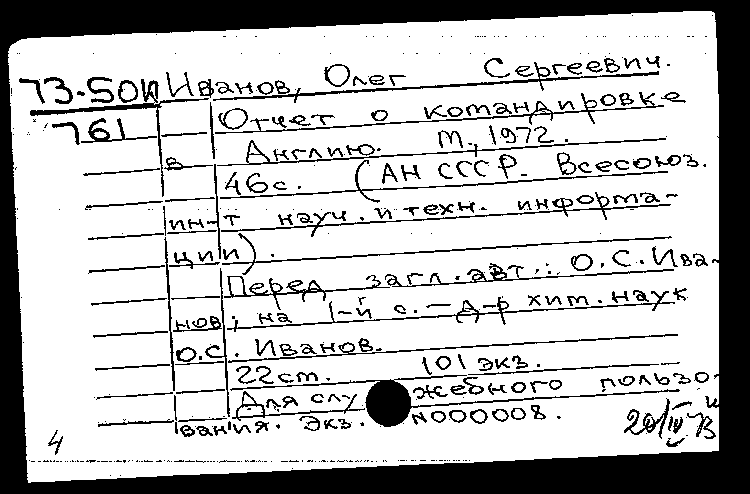 73-50и Иванов, Олег Сергеевич.
761
Отчет о командировке
в Англию. М., 1972.
46с. (АН СССР. Всесоюз.
ин-т науч. и техн. информа-
ции).
Перед загл. авт.: О.С. Ива-
нов; на 1-й с. — д-р хим. наук
О.С. Иванов.
22см. 101 экз.
Для служебного пользо-
вания. Экз. N000008.
4